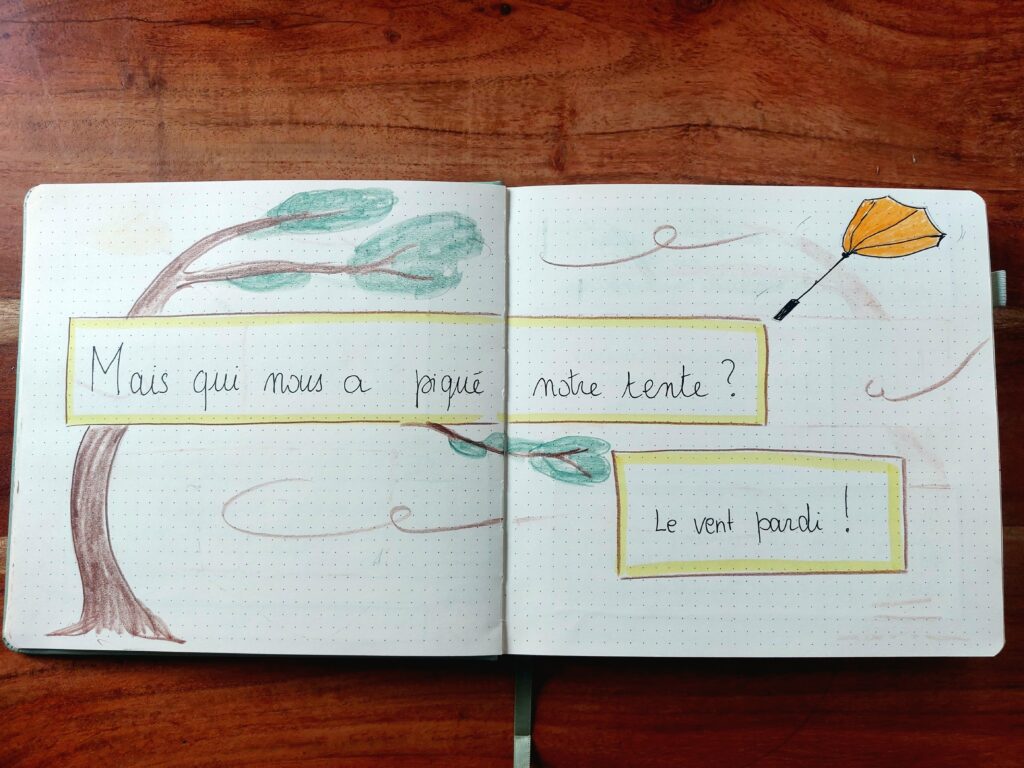 Mais qui nous a piqué notre tente ?
Le vent pardi !